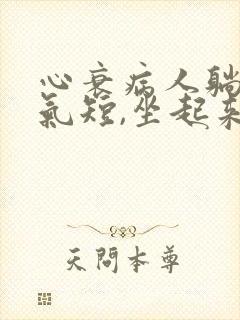 心衰病人躺
氣短,坐起来
天問本尊